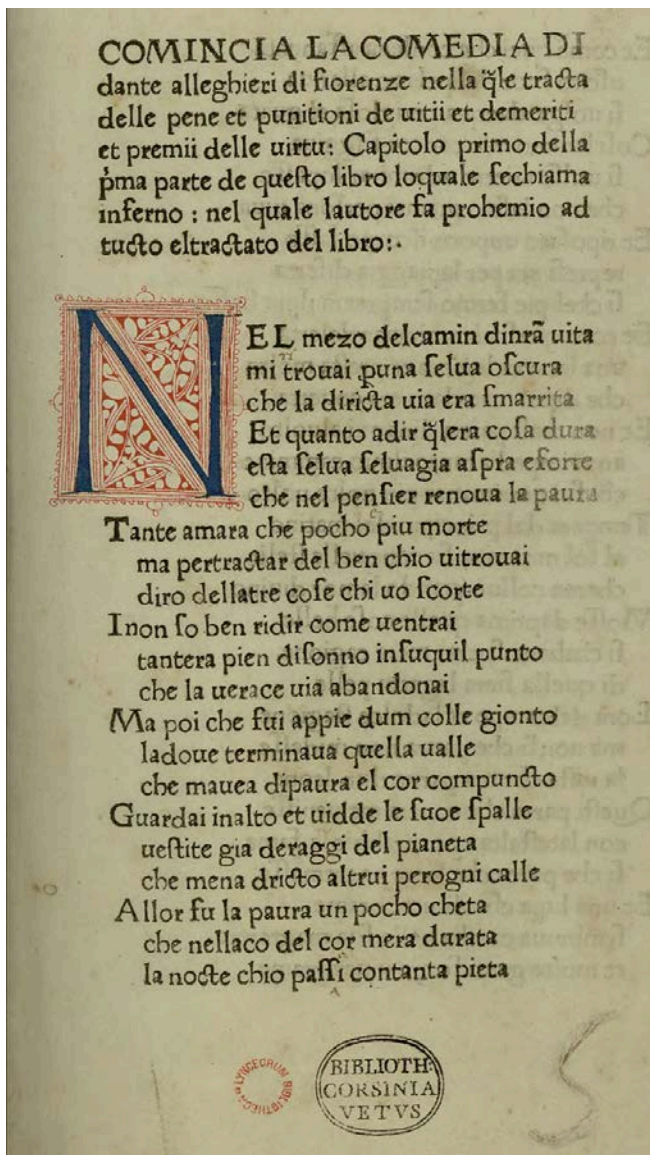 COMINCIA LA COMEDIA DI
dante alleghieri di fiorenze nella q̃le tracta
delle pene et punitioni de uitii et demeriti
et premii delle uirtu: Capitolo primo della
p̃ma parte de queſto libro loquale ſechiama
inferno : nel quale lautore fa probemio ad
tucto eltractato del libro:·
NEL mezo delcamin dinrã uita
mi trouai ꝑuna ſelua oſcura
che la diricta uia era ſmarrita
Et quanto adir q̃lera coſa dura
eſta ſelua ſeluagia aſpra eforte
che nel penſier renoua la paura
Tante amara che pocho piu morte
ma pertractar del ben chio uitrouai
diro dellatre coſe chi uo ſcorte
Inon ſo ben ridir come uentrai
tantera pien diſonno inſuquil punto
che la uerace uia abandonai
Ma poi che fui appie dum colle gionto
ladoue terminaua quella ualle
che mauea dipaura el cor compuncto
Guardai inalto et uidde le ſuoe ſpalle
ueſtite gia deraggi del pianeta
che mena dricto altrui perogni calle
Allor fu la paura un pocho cheta
che nellaco del cor mera durata
la nocte chio paſſi contanta pieta
LYNCEORUM BIBLIOTHECA
BIBLIOTH:
CORSINIA
VETVS